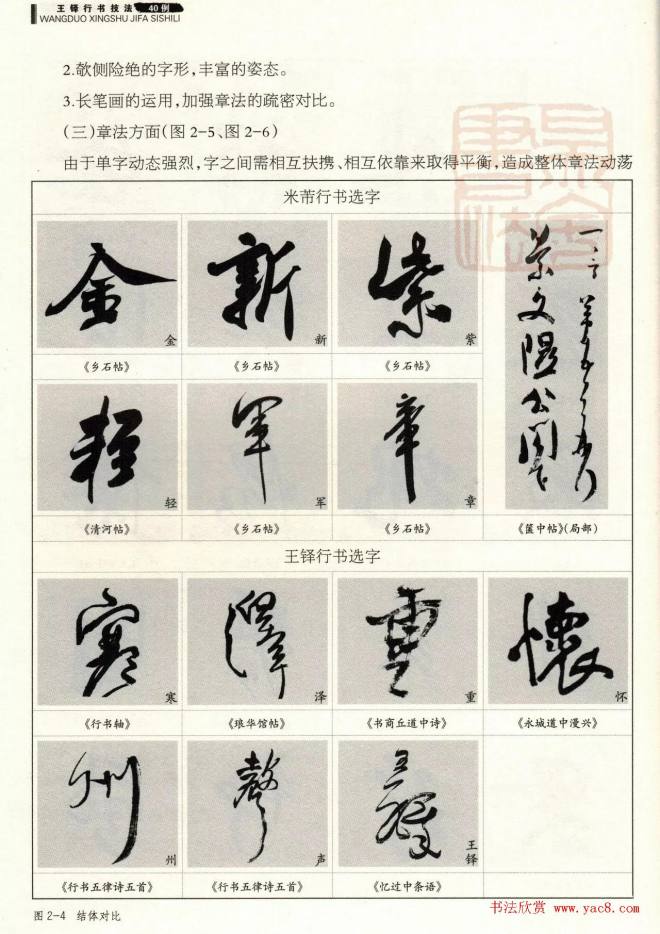 王铎行书技法 40例
WANGDUO XINGSHU JIFA SISHILI
2.欹侧险绝的字形,丰富的姿态。
3.长笔画的运用,加强章法的疏密对比。
(三)章法方面(图2-5、图2-6)
由于单字动态强烈,字之间需相互扶携、相互依靠来取得平衡,造成整体章法动荡
米芾行书选字
金 新 紫
《乡石帖》 《乡石帖》 《乡石帖》
轻 军 章
《清河帖》 《乡石帖》 《乡石帖》 《箧中帖》(局部)
王铎行书选字
寒 泽 重 怀
《行书轴》 《琅华馆帖》 《书商丘道中诗》 《永城道中漫兴》
州 声 王铎
《行书五律诗五首》 《行书五律诗五首》 《忆过中条语》
图2-4 结体对比
书法欣赏 www.yac8.com